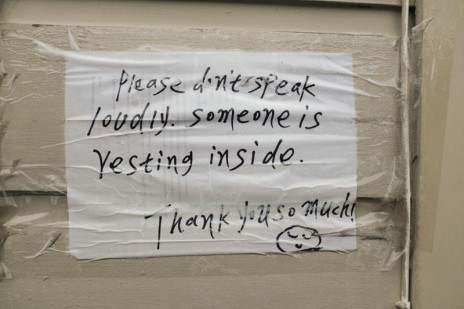 Please don't speak
loudly. someone is
resting inside.
Thank you so much!